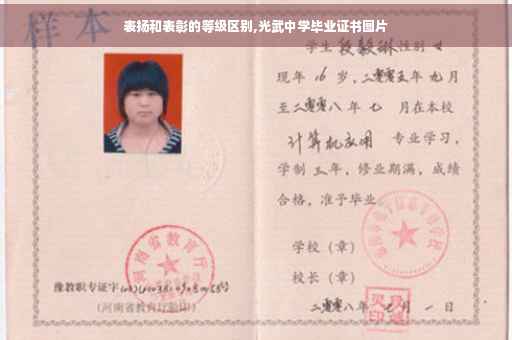 表扬和表彰的等级区别,光武中学毕业证书图片
样本
学生 段毅琳 性别 女
现年 16 岁,二零零五年 九 月
至二零零八年 七 月在本校
计算机应用 专业学习,
学制 三 年,修业期满,成绩
合格,准予毕业
学校(章)
校长(章)
二零零八年 月 一 日
河南省教育厅
豫教职专证字
(河南省教育厅验印)